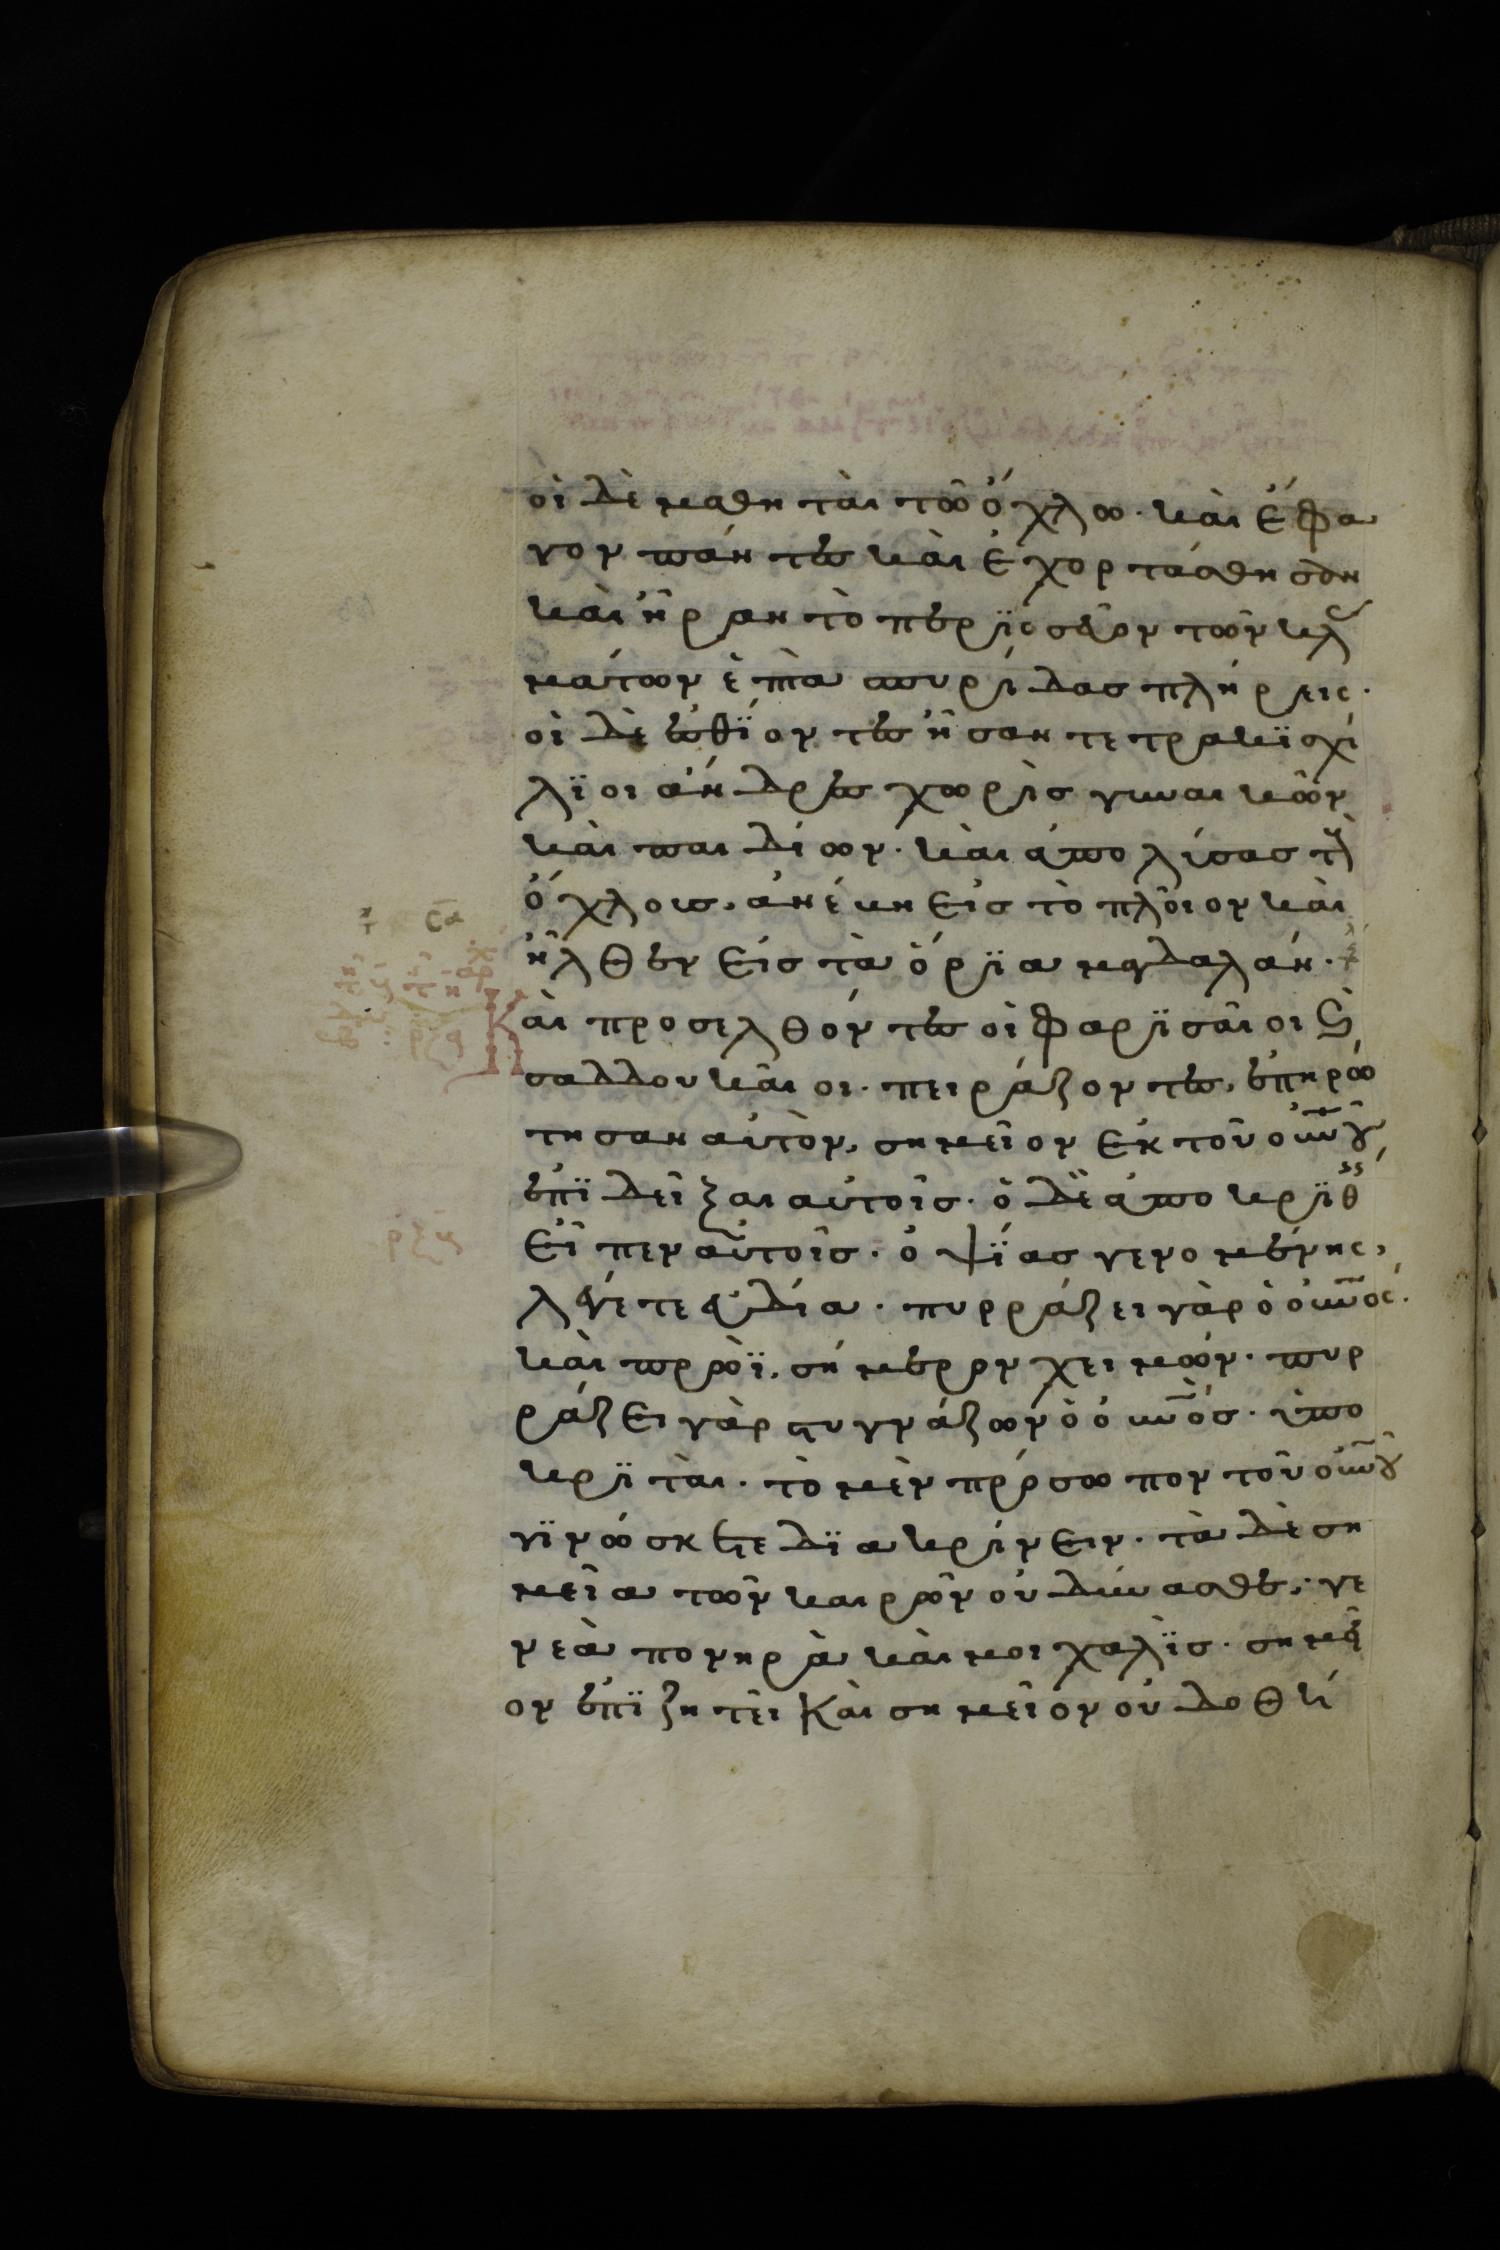 οἱ δὲ μαθηταὶ τῶ ὄχλω· καὶ ἔφα
γον πάντες καὶ ἐχορτάσθησαν
καὶ ἦραν τὸ περϊσσεῦον τῶν κλ
μάτων ἑπτὰ σπυρίδας πλήρεις·
οἱ δὲ ἐσθΐοντες ἦσαν τετρακϊσχί
λϊοι ἄνδρες χωρὶς γυναικῶν
καὶ παιδίων· καὶ ἀπολύσας τοὺ
ὄχλους, ἀνέβη εἰς τὸ πλοῖον καὶ
ἦλθεν εἰς τὰ ὅρϊα μαγδαλάν·
Καὶ προσελθόντες οἱ φαρϊσαῖοι ϗ
σαδδουκαῖοι· πειράζοντες, ἐπηρώ
τησαν αὐτὸν, σημεῖον ἐκ τοῦ οὐνοῦ
ἐπϊδεῖξαι αὐτοῖς· ὁ δὲ ἀποκρϊθεὶς
εἶπεν αὐτοῖς· ὀψΐας γενομένης,
λέγετε εὐδία· πυρράζει γὰρ ὁ οὐνός·
καὶ πρωῒ, σήμερον χειμών· πυρ
ράζει γὰρ στυγνάζων ὁ οὐνός· ὑπο
κρϊταὶ· τὸ μὲν πρόσωπον τοῦ οὐνοῦ
γϊνώσκετε δϊακρίνειν· τὰ δὲ ση
μεῖα τῶν καιρῶν οὐ δύνασθε,· γε
νεὰ πονηρὰ καὶ μοιχαλὶς· σημεῖ
ον ἐπϊζητεῖ καὶ σημεῖον οὐ δοθή